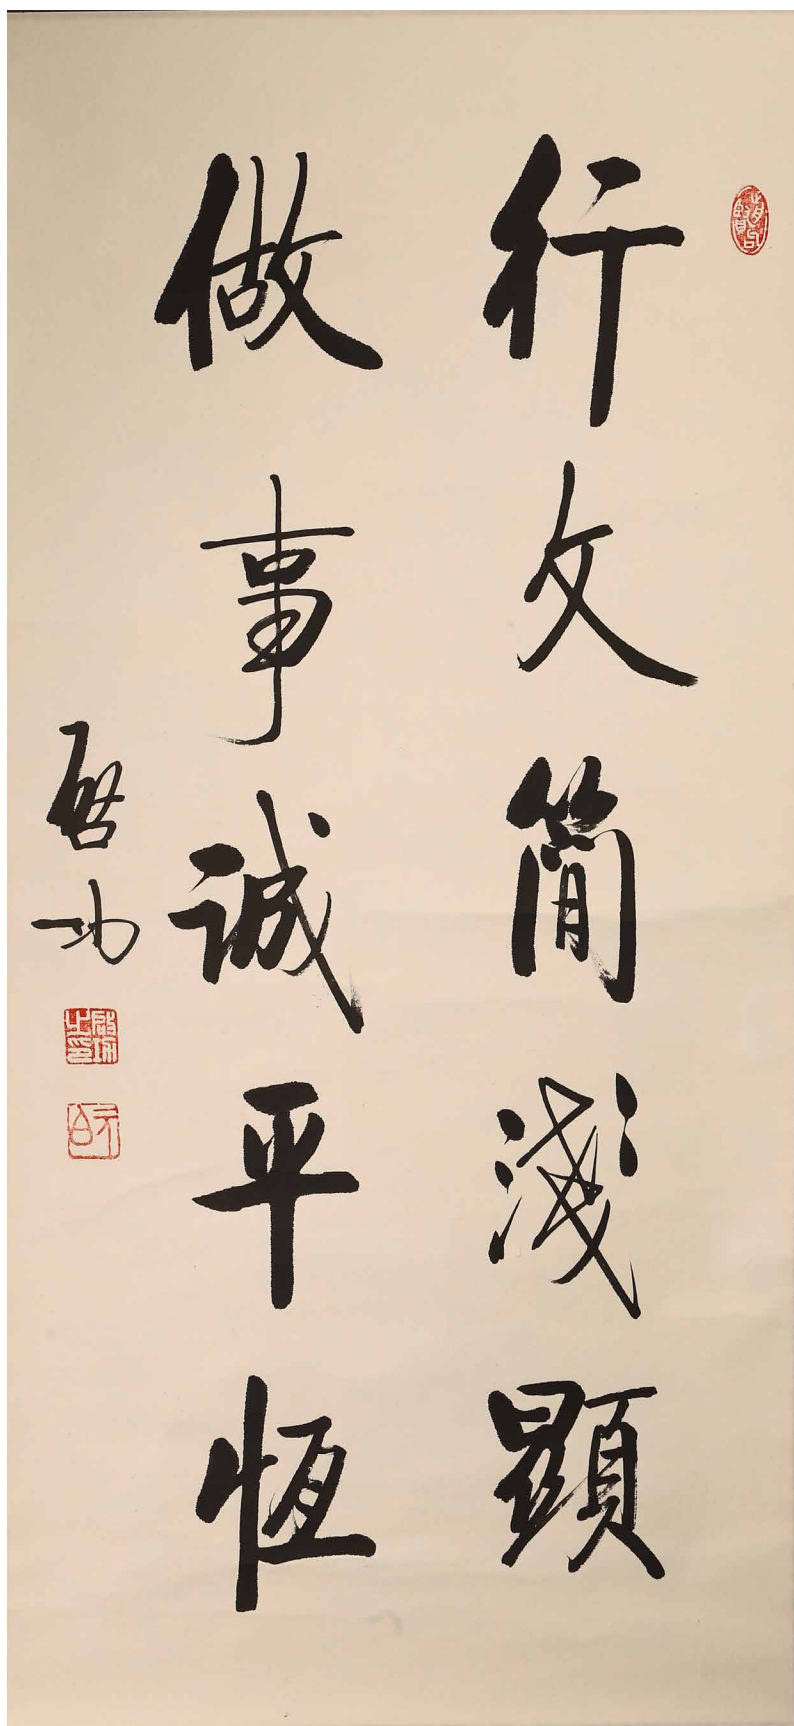 行文簡淺顯
做事誠平恆
啟功
啟功之印
元白